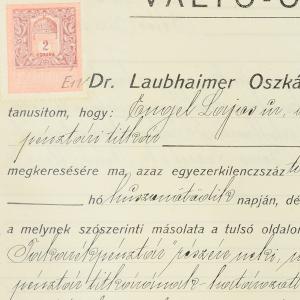 VÁLTÓ-Ó
2
KORONA
Én Dr. Laubhaimer Oszká
tanusítom, hogy: Engel Lajos úr,
pénztári titkár
megkeresésére ma, azaz egyezerkilenczszáz
hó huszonötödik napján, dé
a melynek szószerinti másolata a tulsó oldalon
Takarékpénztár" részére neki,
pénztár titkárának határozat